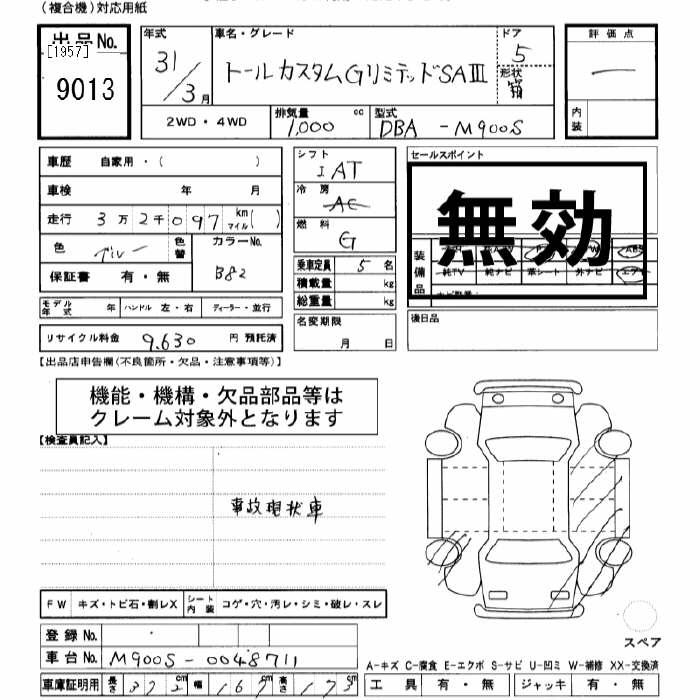 (複合機)対応用紙
出品No. [1957] 9013
年式 31/3月
車名・グレード トールカスタムGリミテッドSAⅢ
ドア 5
形状 箱
評価点 —
内装
2WD・4WD
排気量 1,000 cc
型式 DBA-M900S
車歴 自家用・( )
車検 年 月
走行 3万2千097 km マイル ( )
色
色替
カラーNo. B82
保証書 有・無
モデル年式 年 ハンドル 左・右 ディーラー・並行
リサイクル料金 9,630 円 預託済
シフト I AT
冷房 AC
燃料 G
乗車定員 5名
積載量 kg
総重量 kg
名変期限 月 日
セールスポイント
無効
装備品
純TV 純ナビ 革シート 外ナビ エアB
後日品
【出品店申告欄(不良箇所・欠品・注意事項等)】
機能・機構・欠品部品等は
クレーム対象外となります
【検査員記入】
事故現状車
FW キズ・トビ石・割レX
シート内装 コゲ・穴・汚レ・シミ・破レ・スレ
スペア
登録No.
車台No. M900S-0048711
A-キズ C-腐食 E-エクボ S-サビ U-凹ミ W-補修 XX-交換済
車庫証明用 長さ 372cm 幅 167cm 高さ 173cm
工具 有・無 ジャッキ 有・無